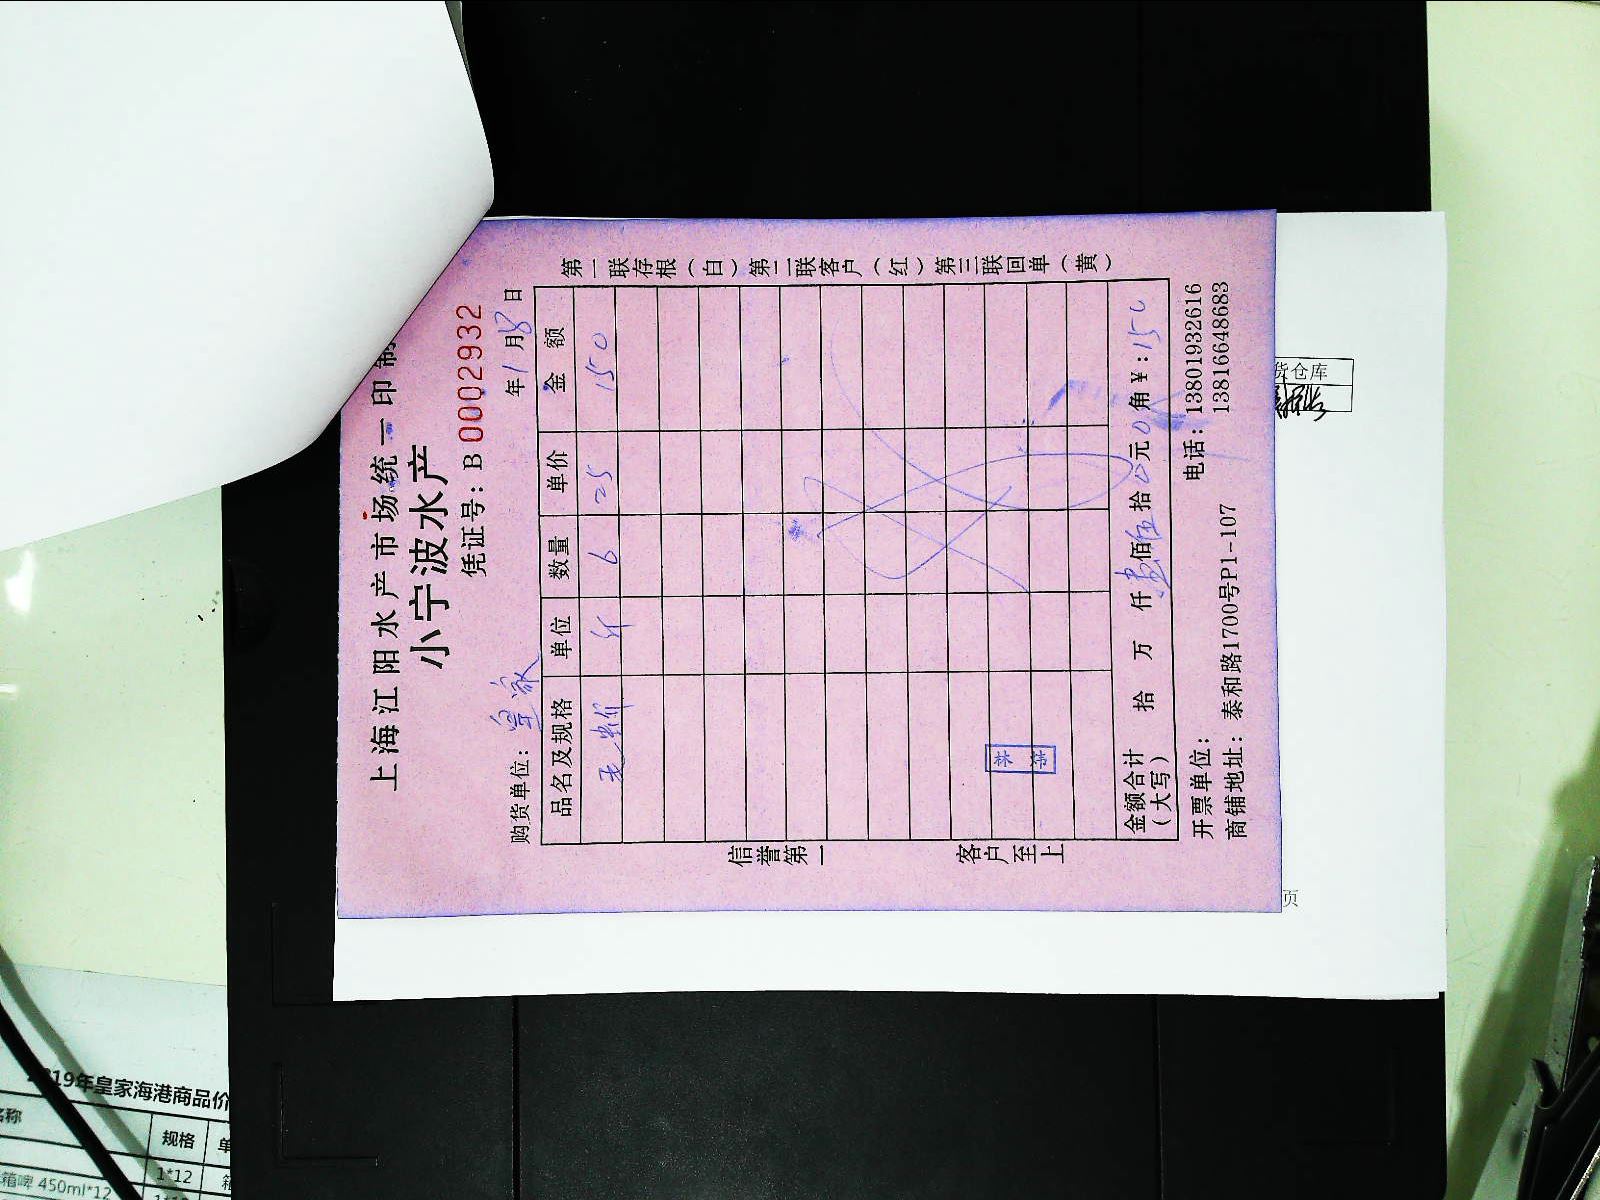 上海江阳水产市场统一印制
小宁波水产
凭证号：B 00029332
购货单位：皇家 年1月8日
品名及规格 单位 数量 单价 金额
毛蚶 斤 6 25 150
金额合计（大写） 拾 万 仟壹佰伍拾0元0角￥：150
开票单位： 电话：13801932616
商铺地址：泰和路1700号P1-107 13816648683
第一联存根（白）第二联客户（红）第三联回单（黄）
信誉第一 客户至上
货仓库
页
19年皇家海港商品价
名称 规格 单
1*12 箱
箱啤 450ml*12